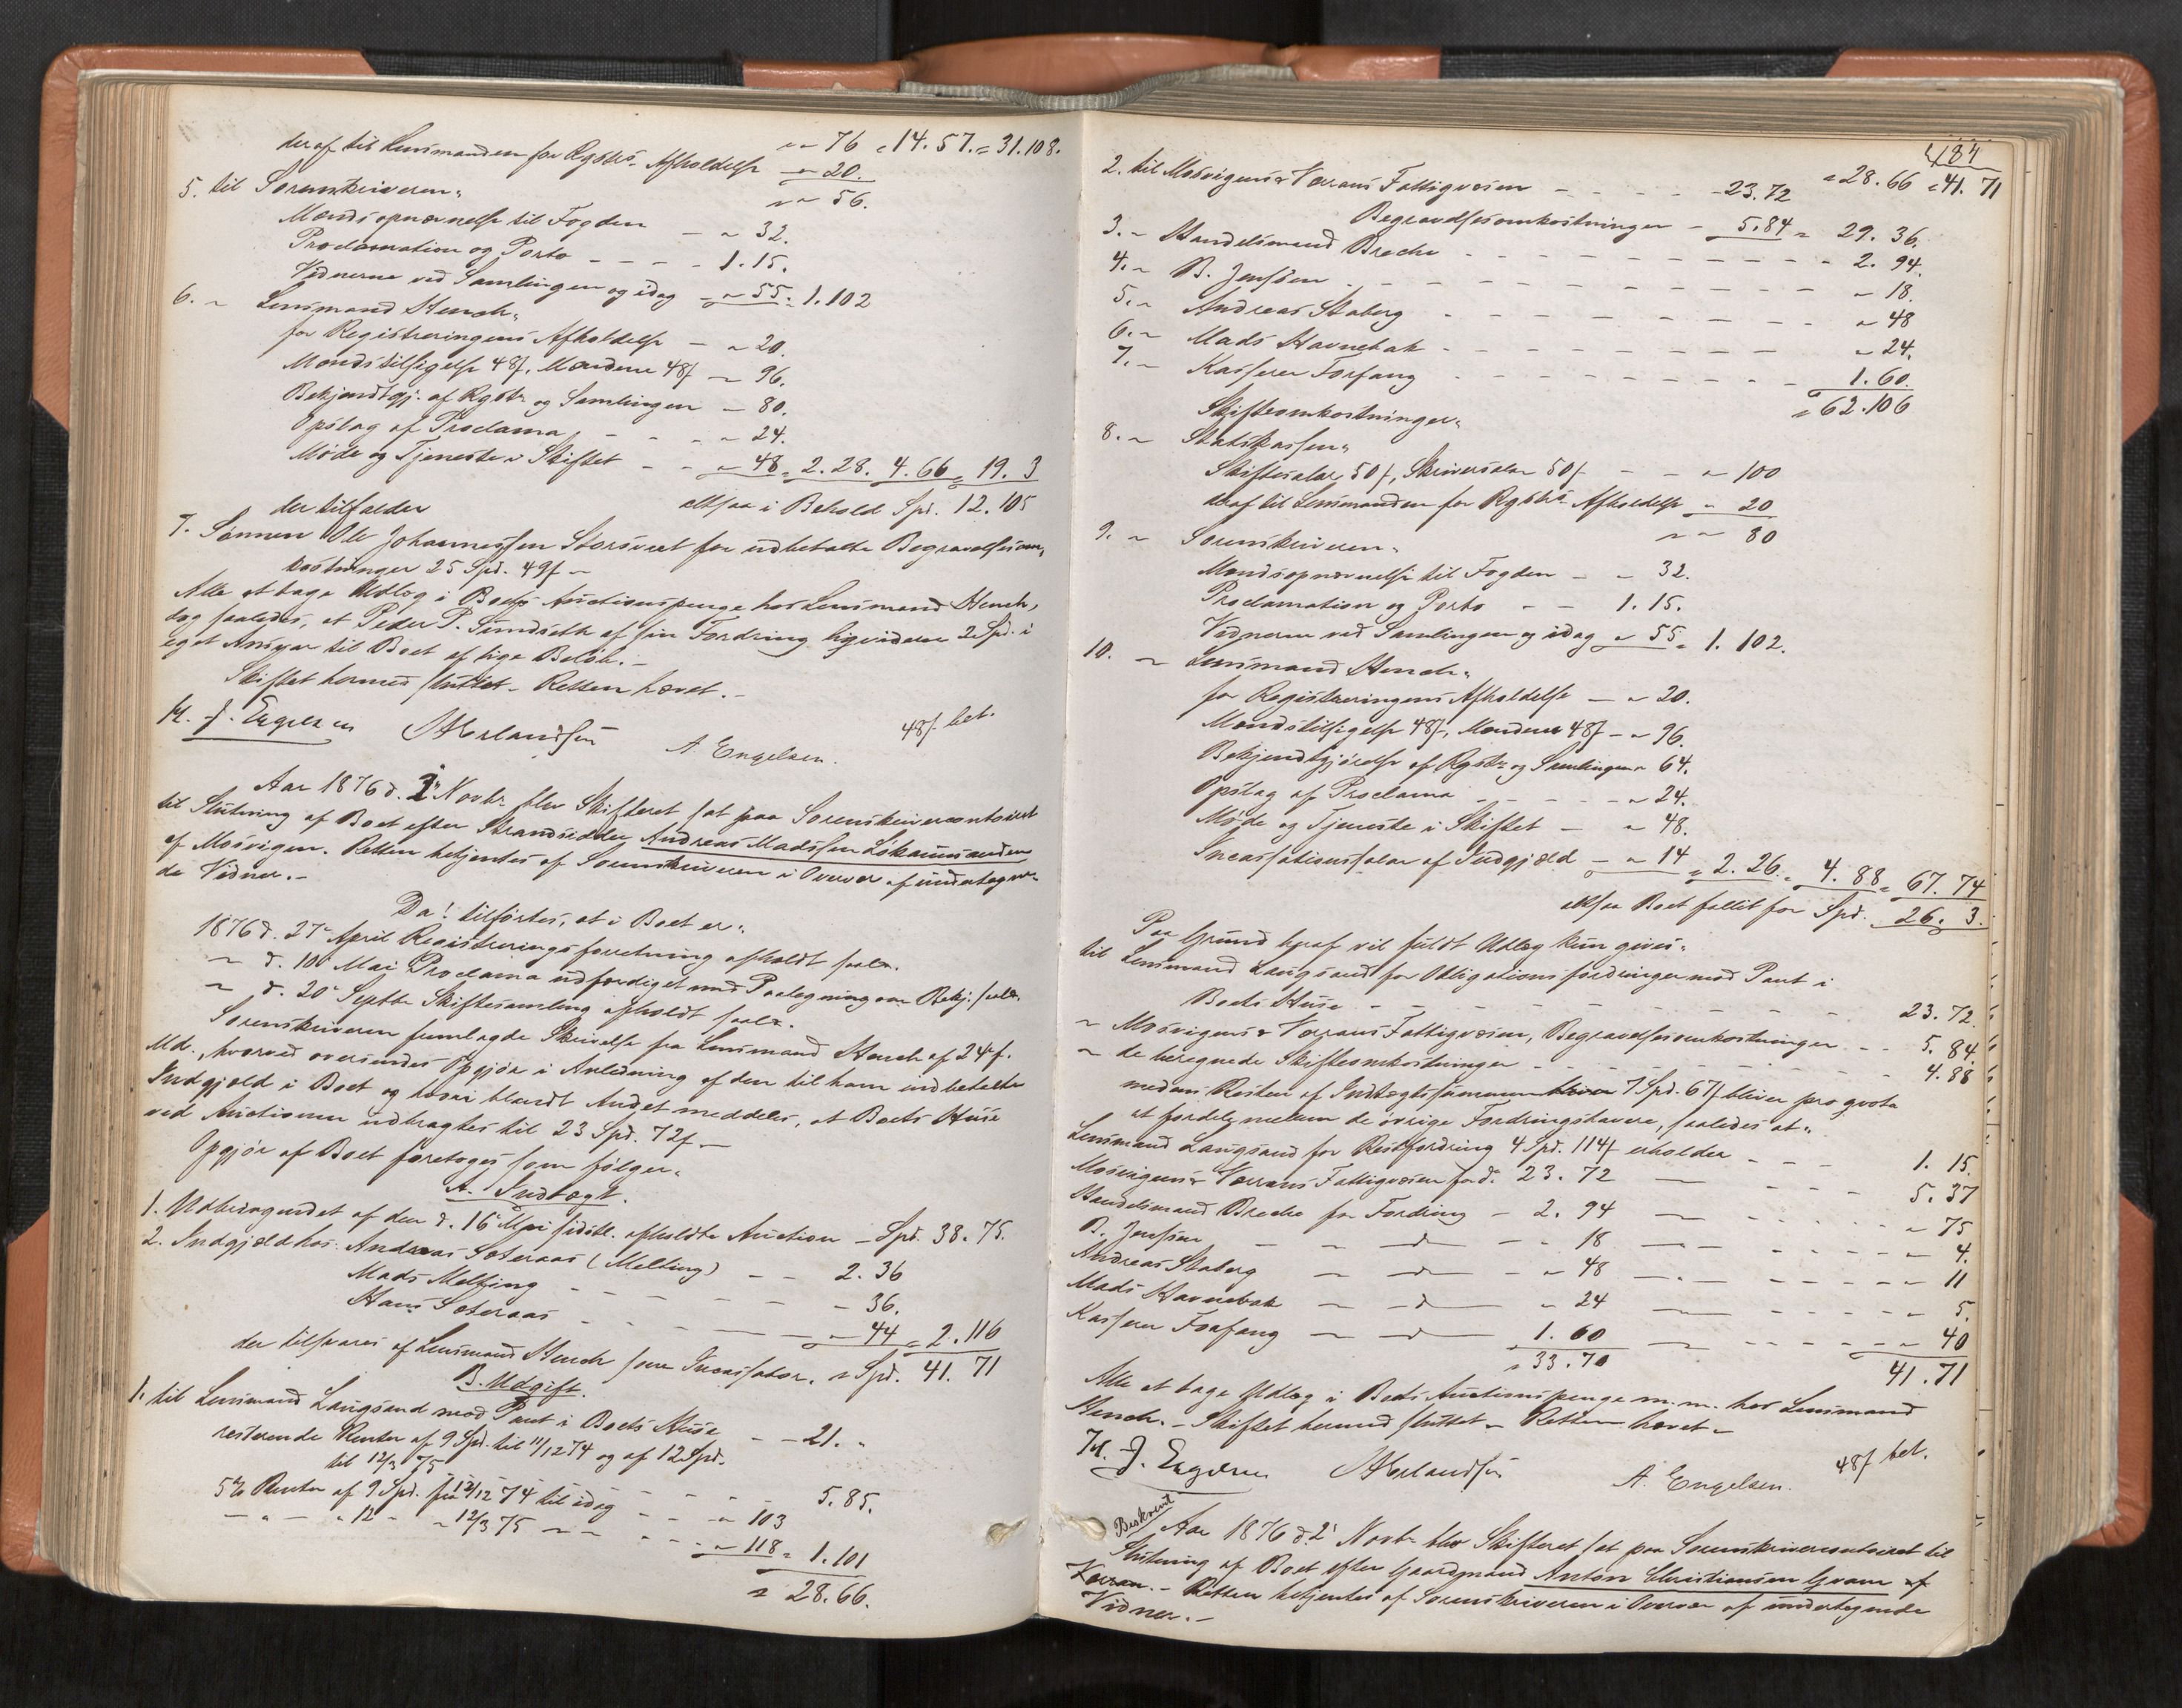 " " 76 = 14. 57. = 31. 108.
deraf til Lensmanden for Rgstrs. Afholdelse — " 20.
" " 56.
5. til Sorenskriveren:
Mændsopnævnelse til Fogden — " 32.
Proclamation og Porto - - - - 1. 15.
Vidnerne ved Samlingen og idag - " 55 = 1. 102
6. " Lensmand Hench:
for Registreringens Afholdelse — " 20.
Mændstilsigelse 48 f, Mændene 48 f — 96.
Bekjendtgj. af Rgstr. og Samlingen — 80.
Opslag af Proclama - - - " 24.
Møde og Tjeneste i Skiftet - - " 48 = 2. 28. 4. 66 = 19. 3
altsaa i Behold Spd. 12. 105
der tilfalder
7. Sønnen Ole Johannessen for udbetalte Begravelsesom-
kostninger 25 Spd. 49 f —
Alle at tage Udlæg i Boets Auctionspenge hos Lensmand Hench,
dog saaledes, at Peder P. Sundseth af sin Fordring liqviderer 2 Spd. i
eget Ansvar til Boet af lige Beløb. —
Skiftet hermed sluttet — Retten hævet. —
48 f bet.
M. J. Engelsen A. Engelsen.
Aar 1876 d. 2' Novbr. blev Skifteret sat paa Sorenskrivercontoiret
til Slutning af Boet efter Strandsidder Andreas Madssen Løkaunsanden
af Mosvigen. Retten betjentes af Sorenskriveren i Overvær af undertegne-
de Vidner. —
Da! tilførtes, at i Boet er:
1876 d. 27' April Registreringsforretning afholdt saal.
" d. 10' Mai Proclama udfærdiget med Paategning om Bekj. saal.
" d. 20' Septbr. Skiftesamling afholdt saal.
Sorenskriveren fremlagde Skrivelse fra Lensmand Hench af 24' f.
Md., hvorved oversendes Opgjør i Anledning af den til ham indbetalte
Indgjæld i Boet og hvori blandt Andet meddeles, at Boets Huse
ved Auctionen udbragtes til 23 Spd. 72 f —
Opgjør af Boet foretoges som følger:
A. Indtægt.
1. Udbringendet af den d. 16' Mai sidstl. afholdte Auction — Spd. 38. 75.
2. Indgjæld hos: Andreas Sæteraas (Melting) - - 2. 36
Mads Melting - - - - - " 36.
Hans Sæteraas - - - - - " 44 = 2. 116
der tilsvares af Lensmand Hench som Incassator. " Spd. 41. 71
B. Udgift.
1. til Lensmand Langsand mod Pant i Boets Huse - - 21. "
resterende Renter af 9 Spd. til 11/12 74 og af 12 Spd.
til 12/3 75 - - - - - 5. 85.
5% Renter af 9 Spd. fra 12/12 74 til idag - - " 103
— " — " 12 " " 12/3 75 " " - - " 118 = 1. 101
" 28. 66.
484
= 28. 66 = 41. 71
2. til Mosvigens & Værrans Fattigvæsen - - - - - 23. 72
Begravelsesomkostninger - 5. 84 = 29. 36.
3. " Handelsmand Brecke - - - - - - - 2. 94.
4. " B. Jenssen - - - - - - - " 18.
5. " Andreas Staberg - - - - - - - " 48
6. " Mads Havnebak - - - - - - - " 24.
7. " Kasserer Forfang - - - - - - - 1. 60.
= 62. 106
Skifteomkostninger:
8. " Statskassen:
Skiftesalær 50 f, Skriversalær 50 f - - " 100
deraf til Lensmanden for Rgstrs. Afholdelse " 20
" " 80
9. " Sorenskriveren:
Mændsopnævnelse til Fogden - " 32.
Proclamation og Porto - - 1. 15.
Vidnerne ved Samlingen og idag " 55 = 1. 102.
10. " Lensmand Hench:
for Registreringens Afholdelse — " 20.
Mændstilsigelse 48 f, Mændene 48 f — " 96.
Bekjendtgjørelse af Rgstr. og Samlingen " 64.
Opslag af Proclama - - - - " 24.
Møde og Tjeneste i Skiftet — " 48.
Incassationssalær af Indgjæld — " 14 = 2. 26. = 4. 88 = 67. 74
altsaa Boet fallit for Spd. 26. 3.
Paa Grund heraf vil fuldt Udlæg kun gives:
til Lensmand Langsand for Obligationsfordringer mod Pant i
Boets Huse - - - - - - - 23. 72.
" Mosvigens & Værrans Fattigvæsen, Begravelsesomkostninger - - 5. 84.
" de beregnede Skifteomkostninger - - - - - 4. 88
medens Resten af Indtægtssummen bliver 7 Spd. 67 f bliver pro qvota
at fordele mellem de øvrige Fordringshavere, saaledes at:
Lensmand Langsand for Restfordring 4 Spd. 114 f erholder - - - 1. 15.
Mosvigens & Værrans Fattigvæsen for d: 23. 72 — - - - 5. 37
Handelsmand Brecke for Fordring - 2. 94 — - - - " 75
B. Jenssen - — d — - " 18 — - - - " 4.
Andreas Staberg — d — - " 48 — - - - " 11
Mads Havnebak — d — " 24 — - - - " 5.
Kasserer Forfang — d — 1. 60 — - - - " 40
" 33. 70 41. 71
Alle at tage Udlæg i Boets Auctionspenge m. m. hos Lensmand
Hench. — Skiftet hermed sluttet — Retten hævet —
48 f bet.
M. J. Engelsen A. Engelsen.
Beskrevet
Aar 1876 d. 2' Novbr. blev Skifteret sat paa Sorenskrivercontoiret til
Slutning af Boet efter Gaardmand Anton Christiansen Gram af
Værran. — Retten betjentes af Sorenskriveren i Overvær af undertegnede
Vidner. —